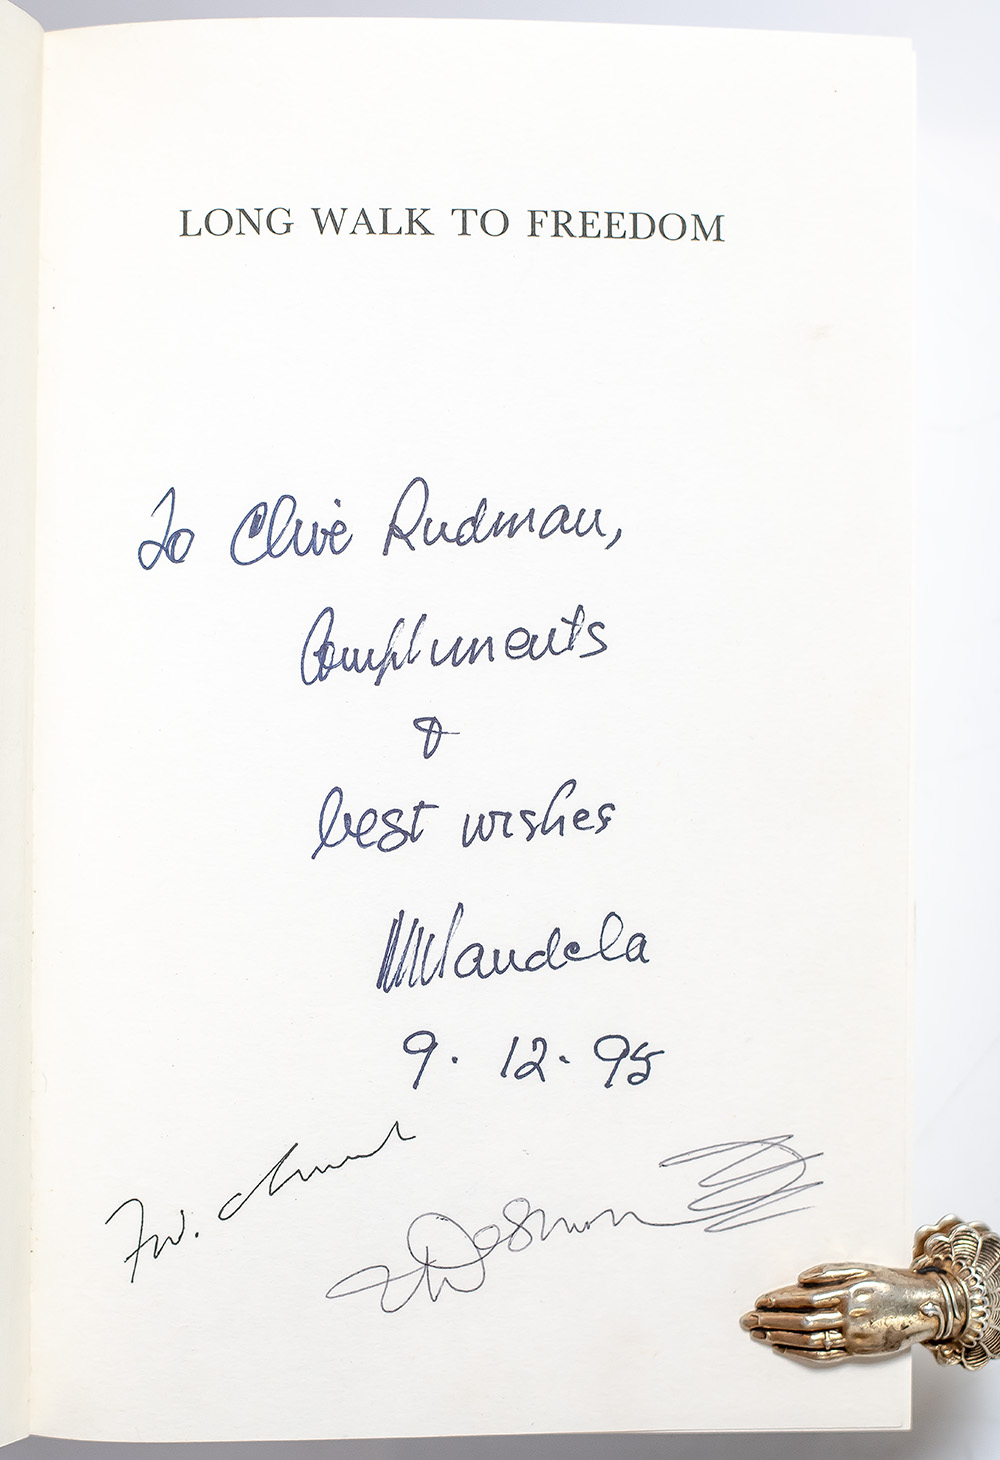 LONG WALK TO FREEDOM
To Clive Rudman,
Compliments
&
best wishes
NMandela
9. 12. 95
F.W. de Klerk
Desmond